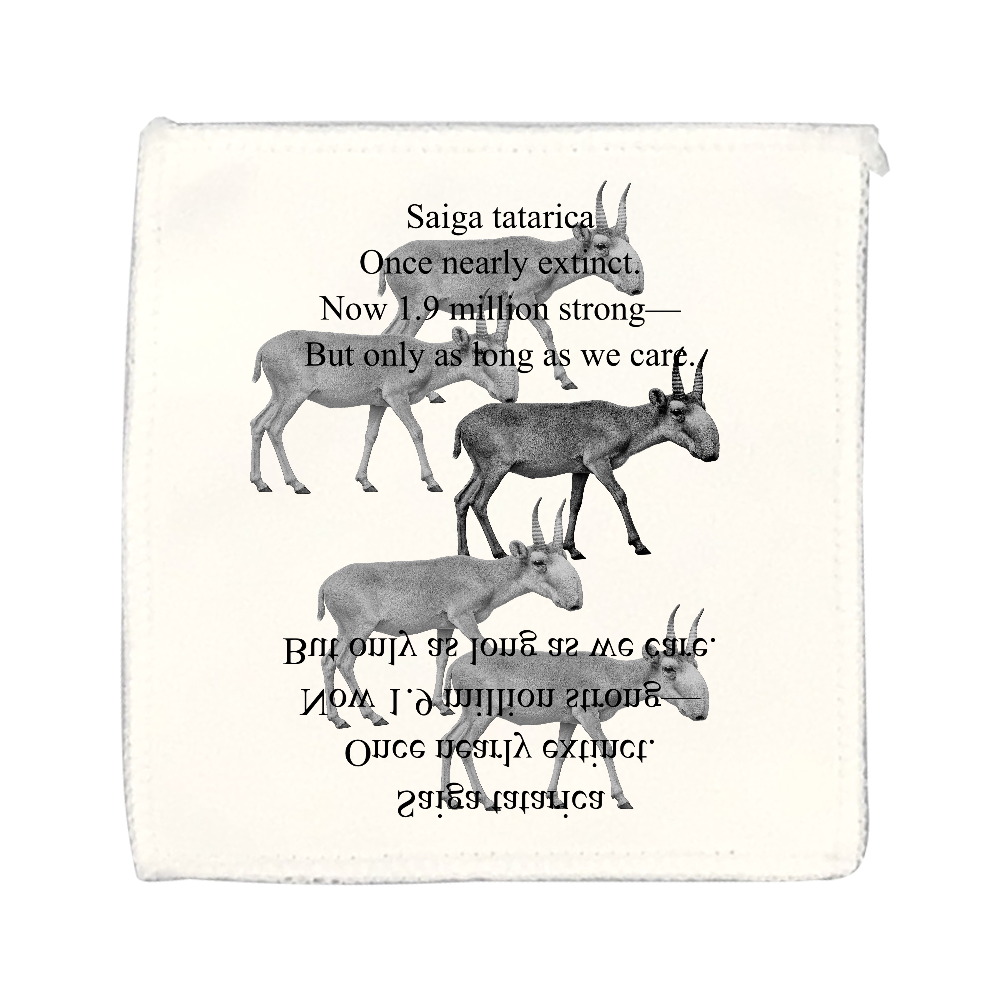 Saiga tatarica
Once nearly extinct.
Now 1.9 million strong—
But only as long as we care.
But only as long as we care.
Now 1.9 million strong—
Once nearly extinct.
Saiga tatarica